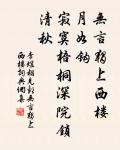 無言獨上西樓
月如鈎
寂寞梧桐深院鎖
清秋
李煜相見歡無言獨上
西樓